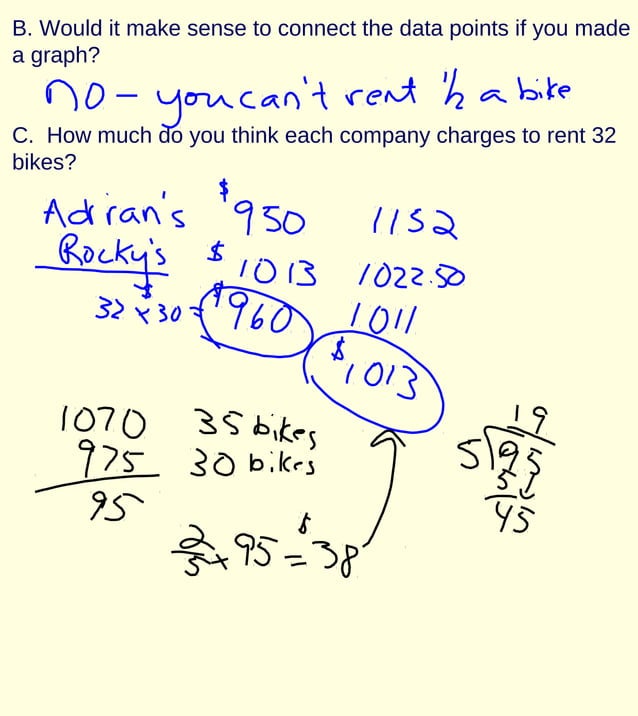 B. Would it make sense to connect the data points if you made
a graph?
no - you can't rent 1/2 a bike
C. How much do you think each company charges to rent 32
bikes?
Adrian's $950 1152
Rocky's $1013 1022.50
32 x $30 = $960 1011
$1013
1070 35 bikes
975 30 bikes
95
2/5 x 95 = $38
19
5 95
5
45